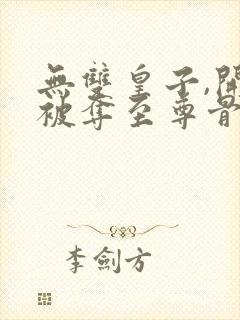 無雙皇子,開
被奪至尊骨
李劍方